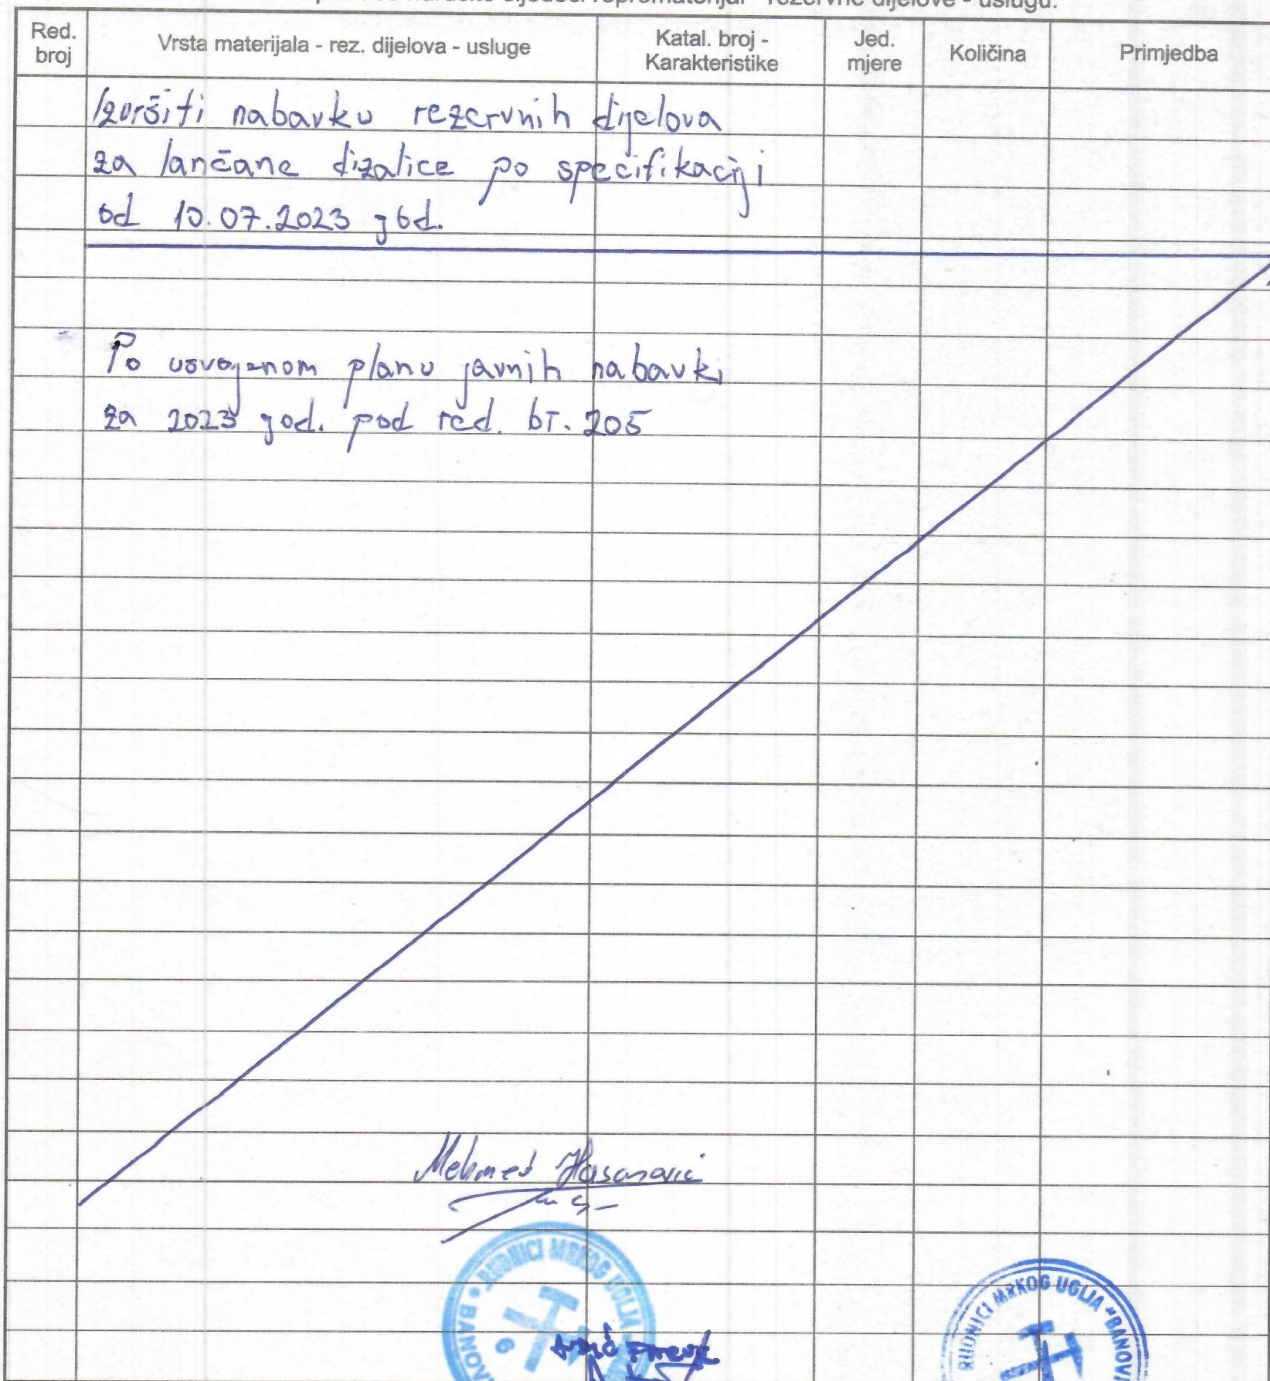 repromaterijal - rezervne dijelove - uslugu.
Red. broj
Vrsta materijala - rez. dijelova - usluge
Katal. broj - Karakteristike
Jed. mjere
Količina
Primjedba
Izvršiti nabavku rezervnih dijelova
za lančane dizalice po specifikaciji
od 10.07.2023 god.
Po usvojenom planu javnih nabavki
za 2023 god. pod red. br. 205
Mehmed Hasanović
RUDNICI MRKOG UGLJA
6
RUDNICI MRKOG UGLJA "BANOVI